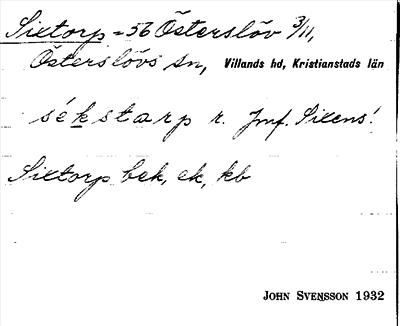 Sixtorp - 56 Österslöv 3/11,
Österslövs sn, Villands hd, Kristianstads län
sékstarp r. Jmf. Sixens!
Sixtorp bek, ek, kb
JOHN SVENSSON 1932